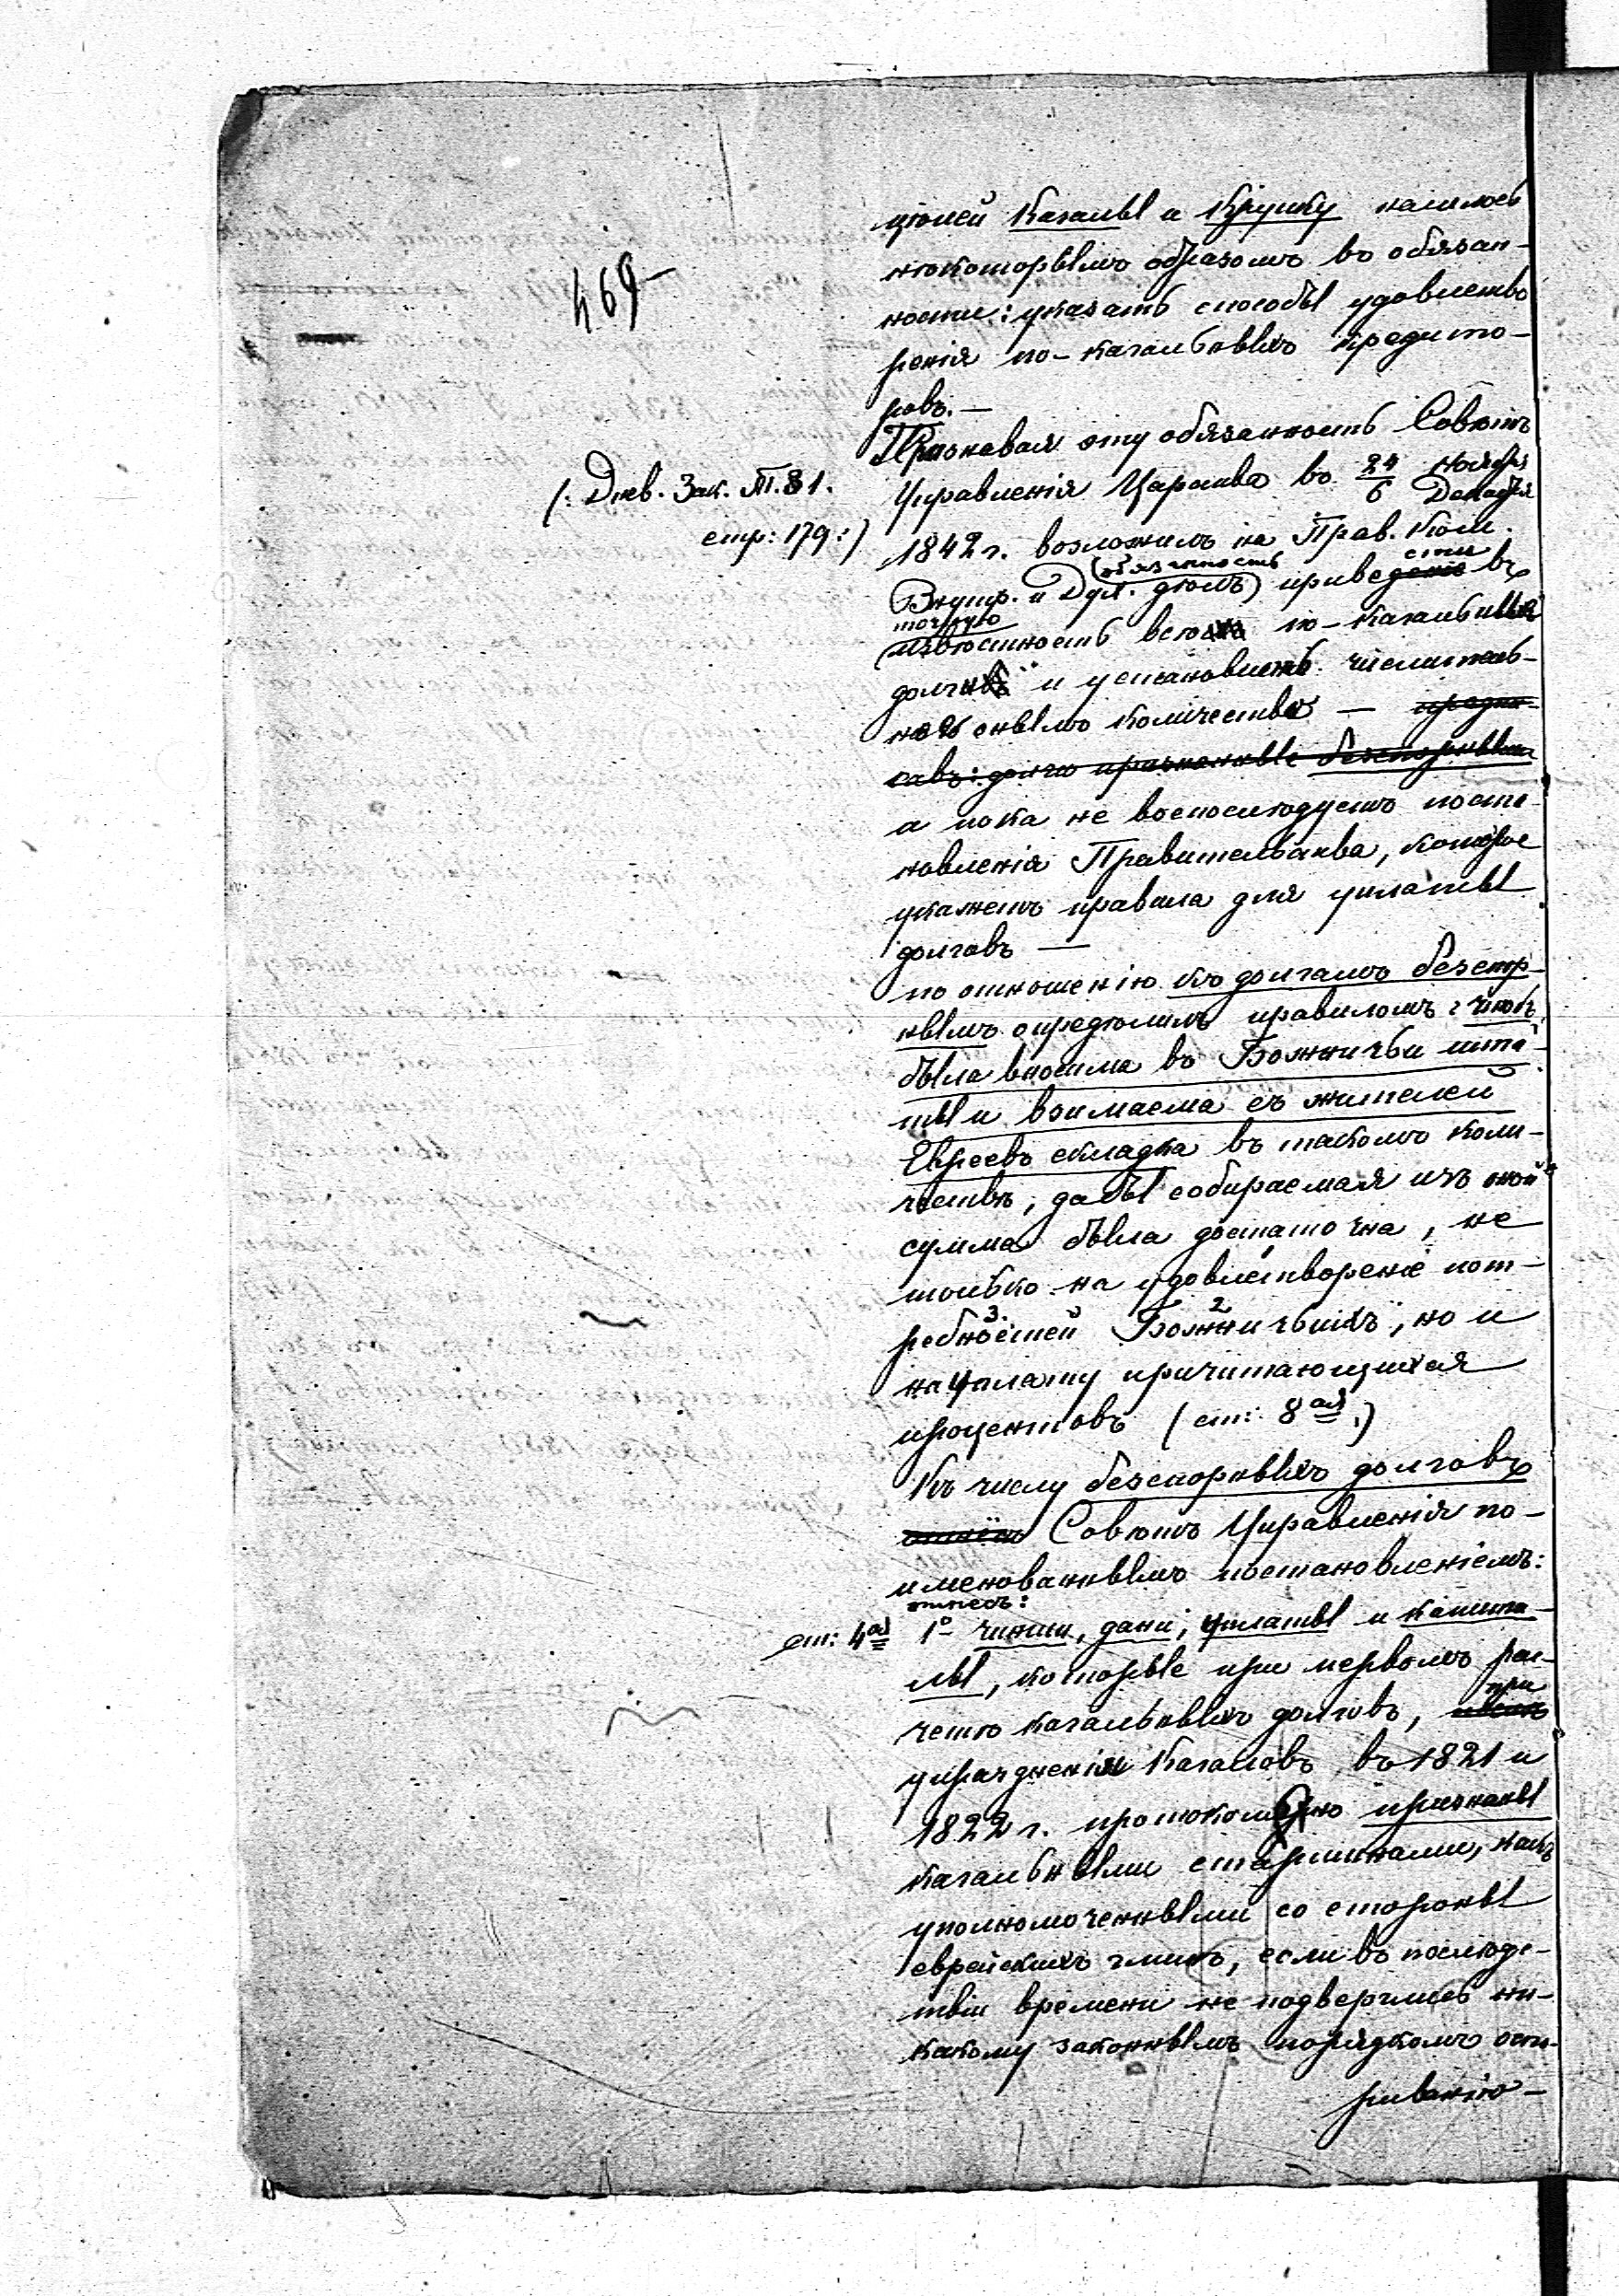 469
цѣлей Кагалы и Крупку нашлось
нѣкоторымъ образомъ въ обязан-
ности: указать способы удовлетво
ренія по-кагальныхъ кредито-
ровъ.—
Признавая эту обязанность Совѣтъ
(: Днев. Зак. Т. 31.
Управленія Царства въ 24/6 Ноября Декабря
стр: 179:)
1842 г. возложилъ на Прав. Ком.
обязанность сти
Внутр. и Дух. дѣлъ привести въ
точную
извѣстность всѣ по-кагальные
долги и установить числитель-
ное оныхъ количество —
а пока не воспослѣдуетъ поста-
новленія Правительства, которое
укажетъ правила для уплаты
долговъ —
по отношенію къ долгамъ безспор-
нымъ опредѣлилъ правиломъ: чтобъ
была вносима въ Божничьи шта-
ты и взимаема съ жителей
Евреевъ складка въ такомъ коли-
чествѣ, дабы собираемая изъ оной
сумма была достаточна, не
только на удовлетвореніе пот-
3. 2
ребностей Божничьихъ, но и
на уплату причитающихся
процентовъ (ст: 8ая.)
Къ числу безспорныхъ долговъ
Совѣтъ Управленія по-
именованнымъ постановленіемъ:
отнесъ:
ст: 4ая 1о чинши, дани, уплаты и капита-
лы, которые при первомъ рас-
при
четѣ кагальныхъ долговъ,
упраздненіи Кагаловъ въ 1821 и
1822 г. протокольно признаны
кагальными старшинами, какъ
уполномоченными со стороны
еврейскихъ гминъ, если въ послѣд-
твіи времени не подверглись ни-
какому законнымъ порядкомъ оспа-
риванію—